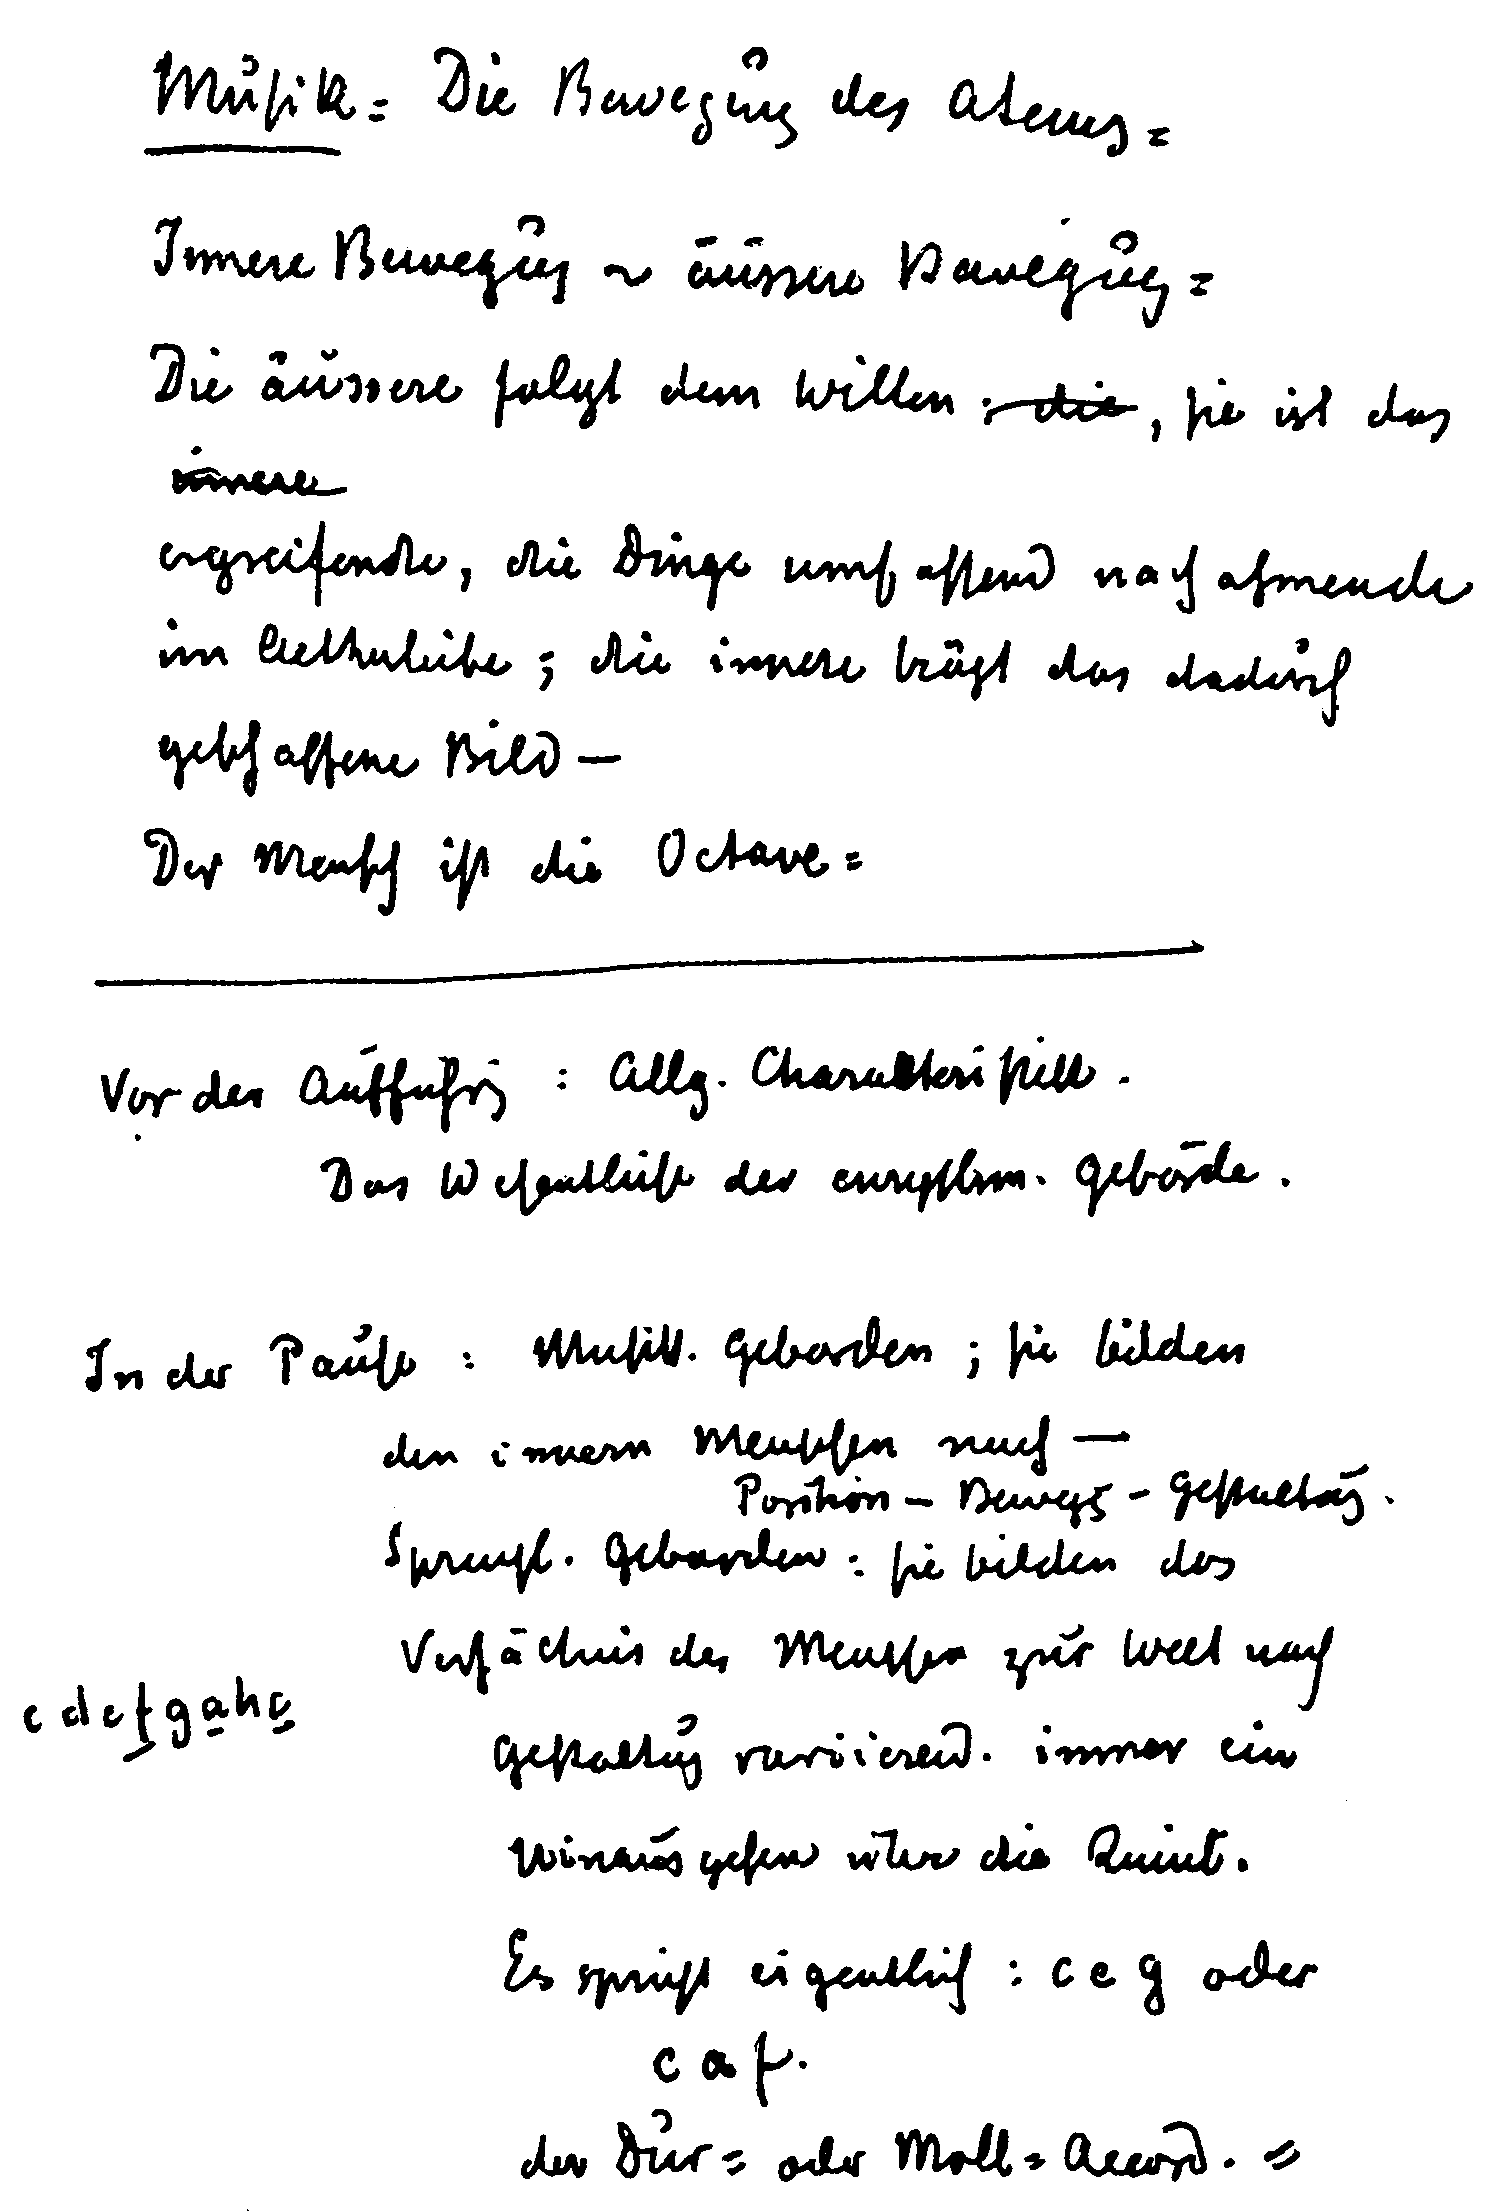 Musik = Die Bewegung des Atems =
Innere Bewegung ~ äussere Bewegung =
Die äussere folgt dem Willen ; die , sie ist das
innere
ergreifende, die Dinge umfassend nachahmende
im Aetherleibe ; die innere trägt das dadurch
geschaffene Bild —
Der Mensch ist die Octave =
Vor der Aufführg : Allg. Charakteristik .
Das Wesentlichste der eurythm. Gebärde .
In der Pause : Musik. Gebärden ; sie bilden
den innern Menschen nach —
Position – Bewegg – Gestaltung .
Sprachl. Gebärden : sie bilden das
Verhältnis des Menschen zur Welt nach
c d e f g a h c
Gestaltung variierend . immer ein
Hinausgehen über die Quint .
Es spricht eigentlich : c e g oder
c a f .
der Dur = oder Moll = Accord . =